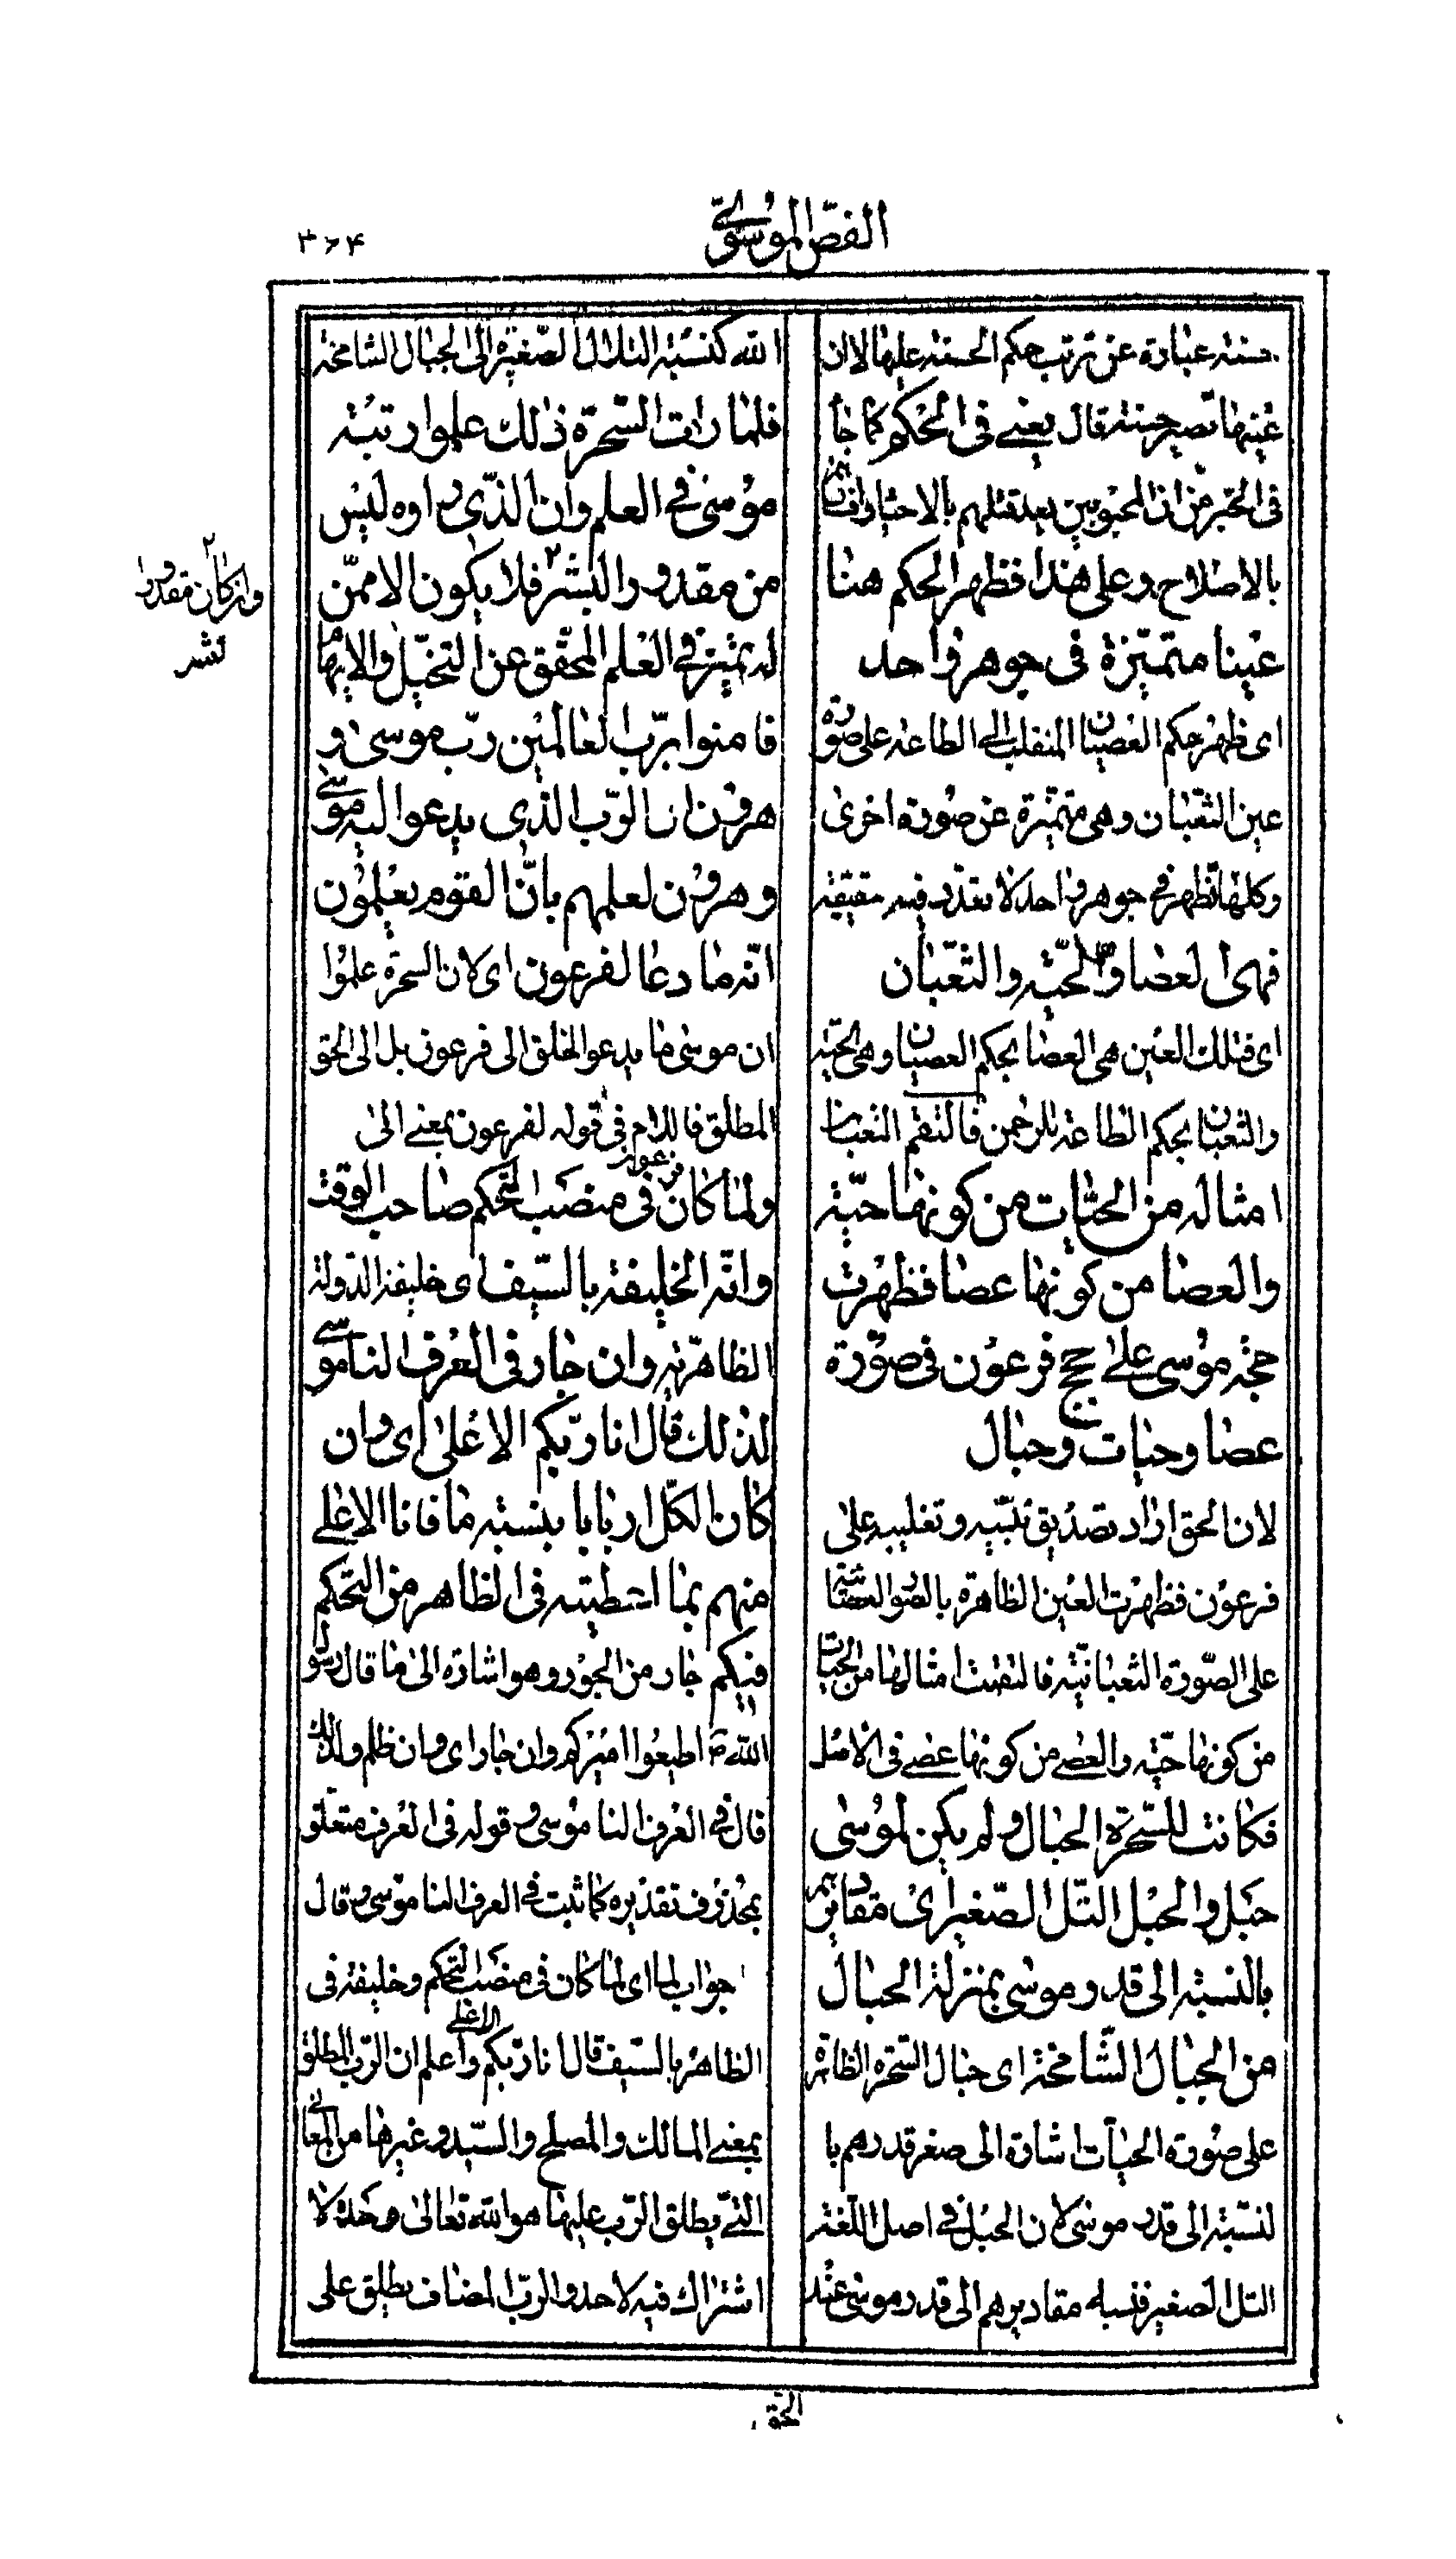 الفص الموسوی
۳۶۴
حسنة عبارة عن ترتب حكم الحسنة عليها لا ان
عينها تصير حسنة قال يعنى فى الحكم كما جا
فى الخبر من ان المحبوبين يعد قتلهم بالاحياء وافسادهم
بالاصلاح وعلى هذا فظهر الحكم هنا
عينا متميّزة فى جوهر واحد
اى ظهر حكم العصيان المنقلب الى الطاعة على صورة
عين الثعبان وهى متميّزة عن صورة اخرى
وكلها تظهر فى جوهر واحد لا تعدد فيه حقيقة
فهى العصا والحيّة والثعبان
اى فتلك العين هى العصا بحكم العصيان وهى الحيّة
والثعبان بحكم الطاعة للرحمن فالتقم الثعبان
امثاله من الحيّات من كونها حيّة
والعصا من كونها عصا فظهرت
حجّة موسى على حجج فرعون فى صورة
عصا وحيات وحبال
لان الحق اراد تصديق نبيّه وتغليبه على
فرعون فظهرت العين الظاهرة بالصورة العصائية
على الصّورة الثعبانيّة فالتقمت امثالها من الحيات
من كونها حيّة والعصى من كونها عصى فى الاصل
فكانت للسّحرة الحبال ولم يكن لموسى
حبل والحبل التلّ الصّغير اى مقاديرهم
بالنسبة الى قدر موسى بمنزلة الحبال
من الجبال الشّامخة اى حبال السّحرة الظاهرة
على صورة الحيّات اشارة الى صغر قدرهم با
لنسبة الى قدر موسى لان الحبل فى اصل اللّغة
التل الصغير فنسبة مقاديرهم الى قدر موسى عند
الله كنسبة التلال الصّغيرة الى الجبال الشامخة
فلما رات السّحرة ذلك علموا رتبة
موسى فى العلم وان الذّى راوه ليس
من مقدور البشر ۲ فلا يكون الا ممّن
له تميّز فى العلم المحقّق عن التخيّل والايهام
فامنوا بربّ العالمين ربّ موسى و
هرون اى الرّب الذى يدعوا اليه موسى
وهرون لعلمهم بانّ القوم يعلمون
انّه ما دعا لفرعون اى لان السحرة علموا
ان موسى ما يدعو الخلق الى فرعون بل الى الحق
المطلق فاللام فى قوله لفرعون بمعنى الى
ولما كان فرعون فى منصب التّحكم صاحب الوقت
وانّه الخليفة بالسّيف اى خليفة الدولة
الظاهرية وان جار فى العرف الناموسى
لذلك قال انا ربّكم الاعلى اى وان
كان الكلّ اربابا بنسبة ما فانا الاعلى
منهم بما اعطيته فى الظاهر من التحكم
فيكم جار من الجور وهو اشارة الى ما قال رسول
الله ص اطيعوا اميركم وان جار اى وان ظلم ولذلك
قال فى العرف الناموسى وقوله فى العرف متعلق
بمحذوف تقديره كما ثبت فى العرف الناموسى وقال
جواب لما اى لما كان فى منصب التّحكم وخليفة فى
الظاهر بالسّيف قال انا ربّكم الاعلى واعلم ان الرّب المطلق
بمعنى المالك والمصلح والسّيد وغيرها من المعانى
التّى يطلق الرّب عليها هو الله تعالى وحده لا
اشتراك فيه لاحد والرّب المضاف يطلق على
۲ وان كان مقدور
بشر
الحق